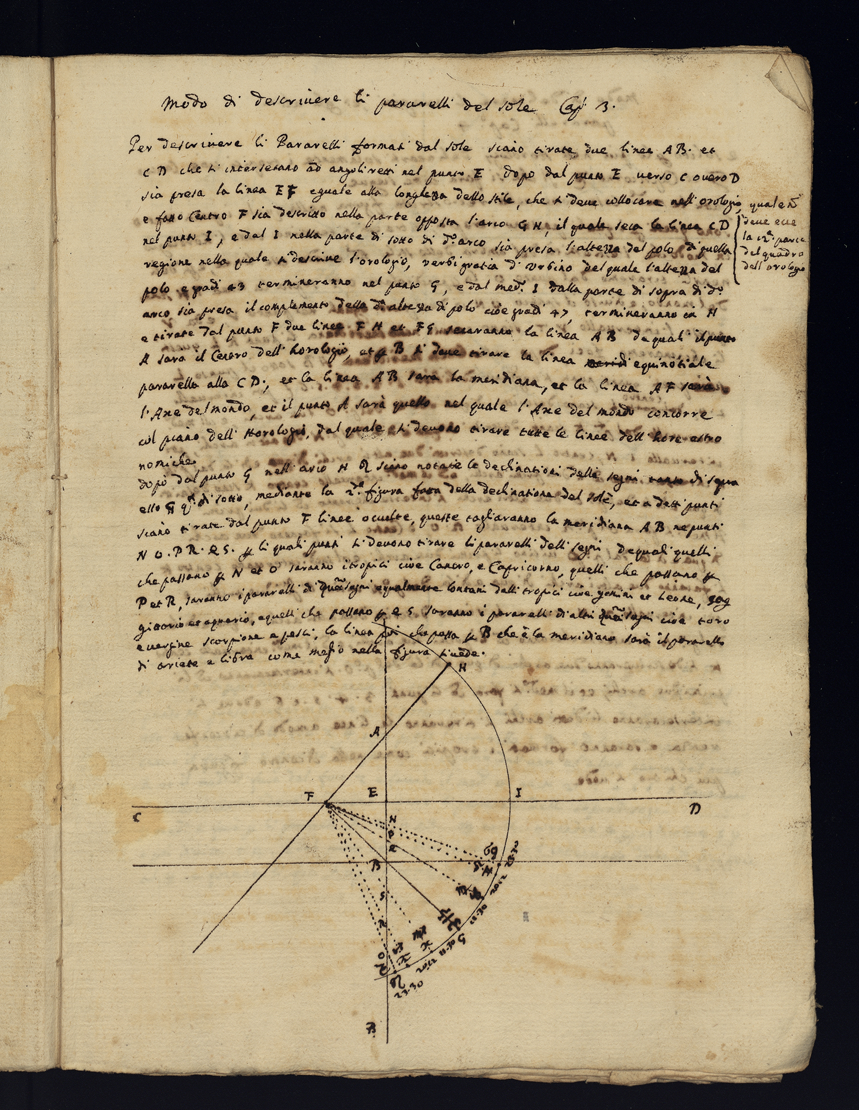 Modo di descrivere li pararelli del sole Cap 3.
Per descrivere li Pararelli formati dal sole siano tirate due linee AB. et
CD che si intersecano ad angoli retti nel punto E dopo dal punto E verso C overo D
sia presa la linea EF eguale alla longhezza dello stile, che si deve collocare nell'orologio, quale
deve
la 12ª parte
del quadro
dell'orologio
e fatto Centro F sia descritto nella parte opposta l'arco GH, il quale seca la linea CD
nel punto I, e dal I nella parte di sotto di dº arco sia presa l'altezza del polo di quella
regione nella quale si descrive l'orologio, verbi gratia d'Urbino del quale l'altezza del
polo e gradi 43 termineranno nel punto G, e dal medº I dalla parte di sopra di dº
arco sia preso il complemento della dª altezza di polo cioè gradi 47, termineranno in H
e tirate dal punto F due linee FH et FG secaranno la linea AB de quali il punto
A sarà il Centro dell'horologio, et p B si deve tirare la linea equinotiale
pararella alla CD, et la linea AB sarà la meridiana, et la linea AF sarà
l'Axe del mondo, et il punto A sarà quello nel quale l'Axe del mondo concorre
col piano dell'Horologio, dal quale si devono tirare tutte le linee dell'hore astro
nomiche.
dopo dal punto G nell'arco siano notate le declinationi delli segni tanto di sopra
di sotto, mediante la 2ª figura fatta della declinatione del sole, et a detti punti
siano tirate dal punto F linee oculte, queste tagliaranno la meridiana AB ne punti
N O. P R. Q S. p li quali punti si devono tirare li pararelli delli segni de quali quelli
che passano p N et O saranno i tropici cioè Cancro, e Capricorno, quelli che passano p
P et R, saranno i pararelli di segni egualmente lontani dalli tropici cioè gemini et Leone, sag
gittario et aquario, e quelli che passano p Q S saranno i pararelli di altri segni cioè toro
e vergine scorpione e pesci, la linea poi che passa p B che è la meridiana sarà il pararello
di ariete e libra come meglio nella figura si vede.
H
A
F
E
I
C
D
N
P
Q
B
S
R
O
♋
♌
♊
23 30
20 12
11 30
G
11 30
20 12
23 30
B